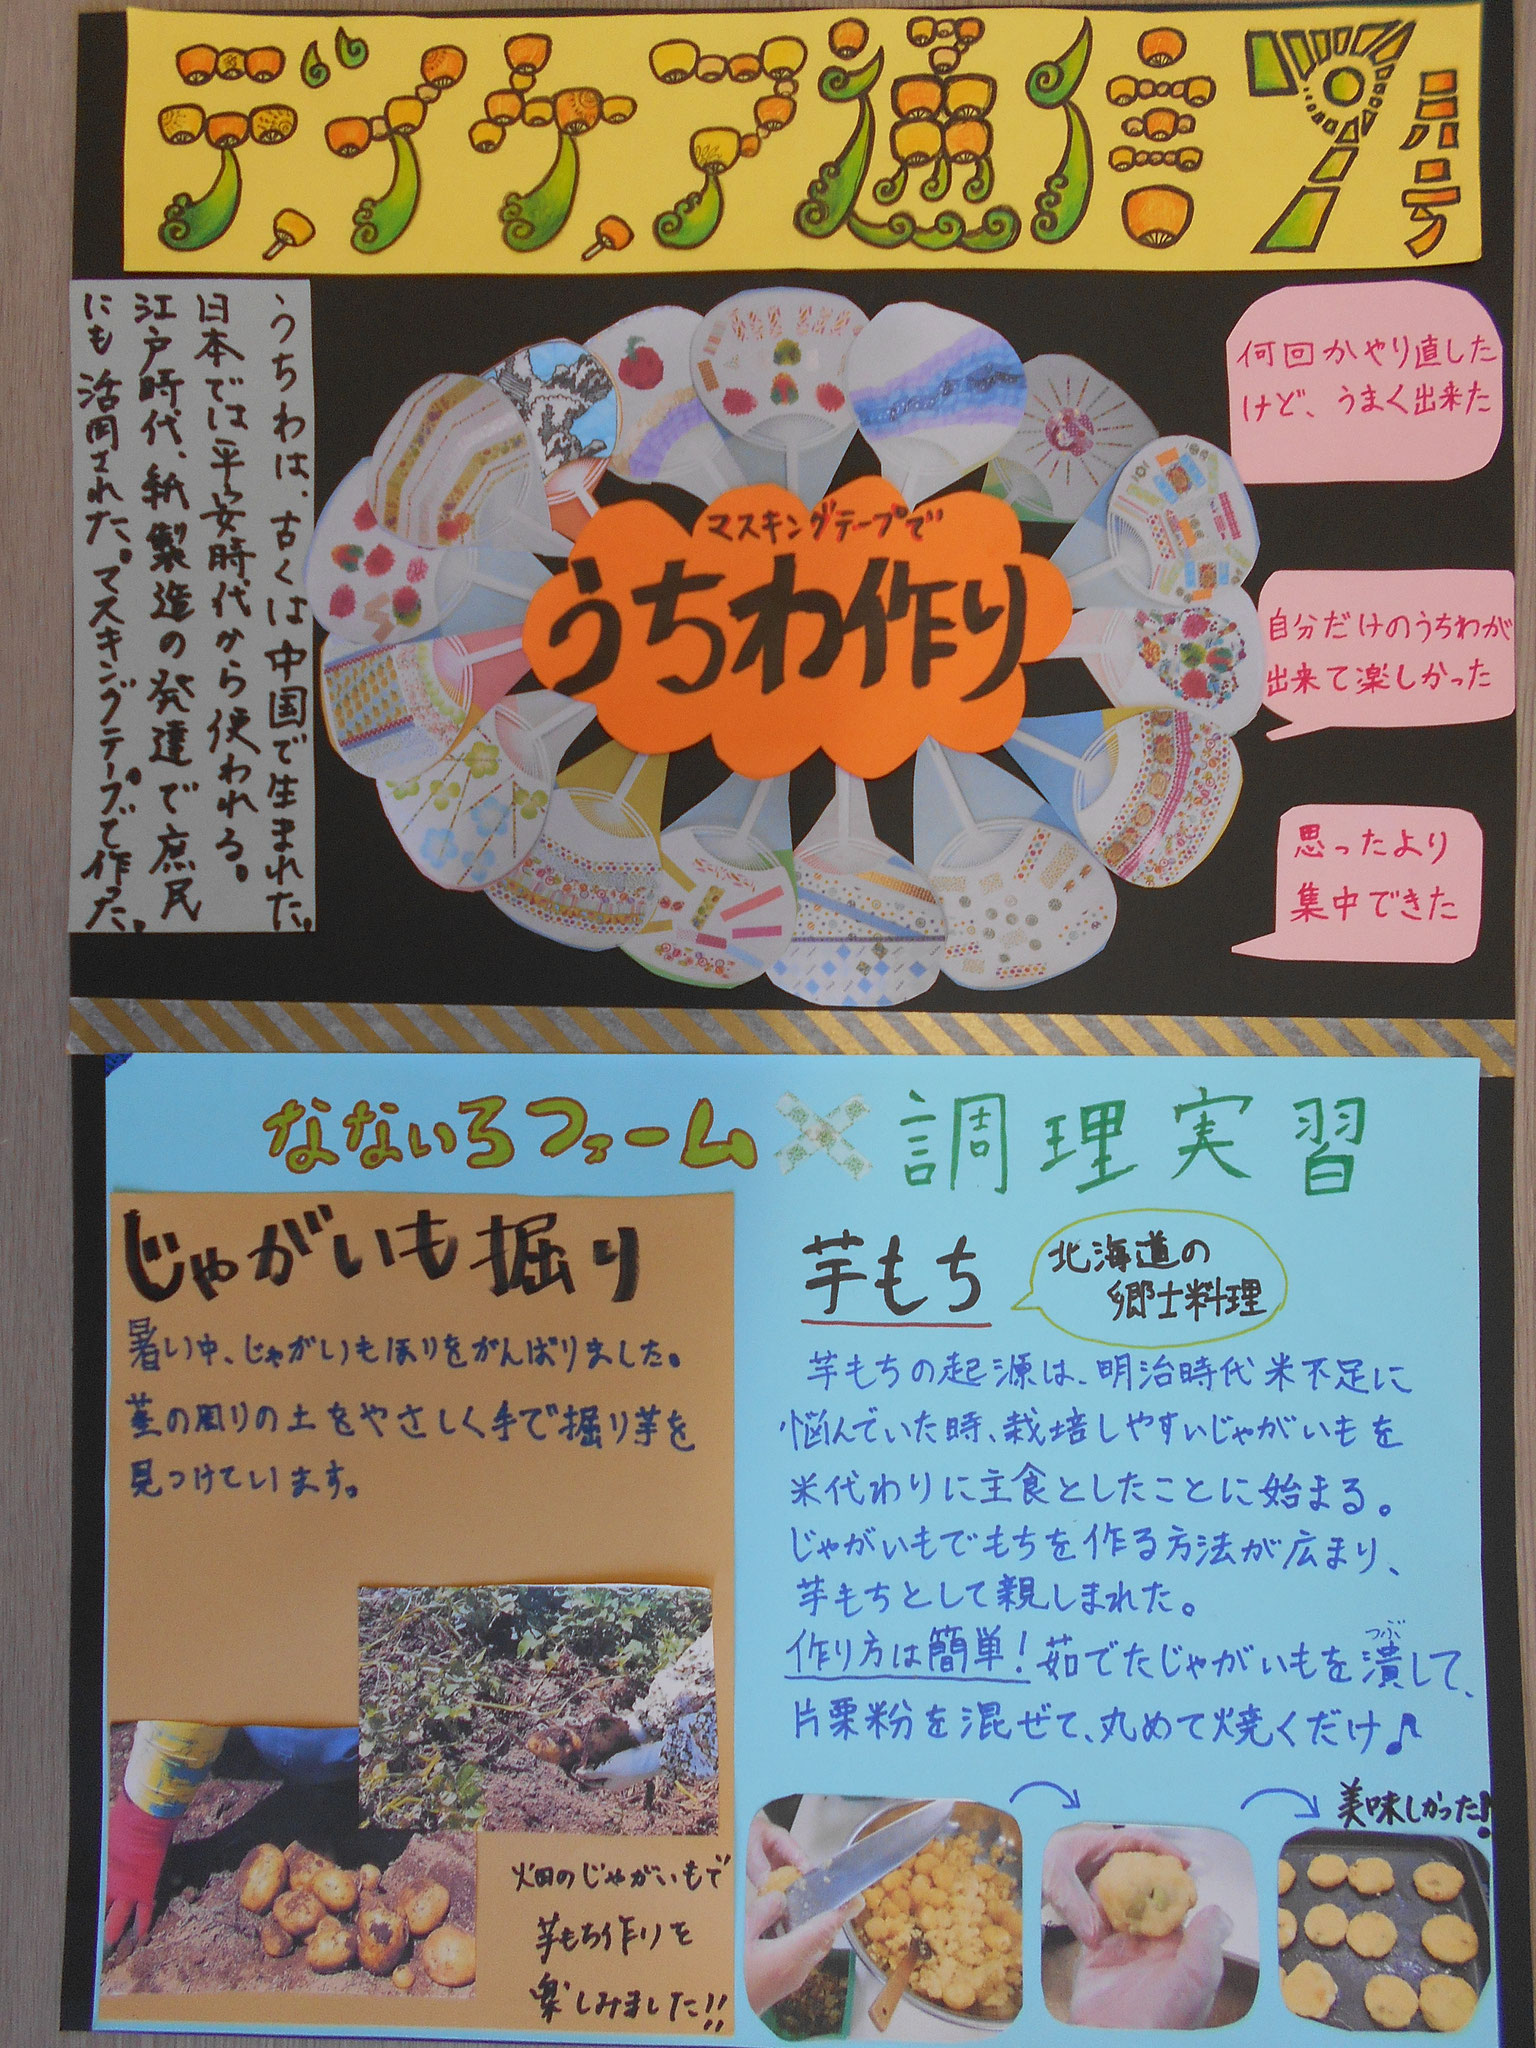 デイケア通信 9号
うちわは、古くは中国で生まれた。
日本では平安時代から使われる。
江戸時代、紙製造の発達で庶民
にも活用された。マスキングテープで作った。
マスキングテープで
うちわ作り
何回かやり直した
けど、うまく出来た
自分だけのうちわが
出来て楽しかった
思ったより
集中できた
なないろファーム×調理実習
じゃがいも掘り
暑い中、じゃがいもほりをがんばりました。
茎の周りの土をやさしく手で掘り芋を
見つけています。
畑のじゃがいもで
芋もち作りを
楽しみました!!
芋もち
北海道の
郷土料理
芋もちの起源は、明治時代米不足に
悩んでいた時、栽培しやすいじゃがいもを
米代わりに主食としたことに始まる。
じゃがいもでもちを作る方法が広まり、
芋もちとして親しまれた。
作り方は簡単!茹でたじゃがいもを潰して、
つぶ
片栗粉を混ぜて、丸めて焼くだけ♪
美味しかった!